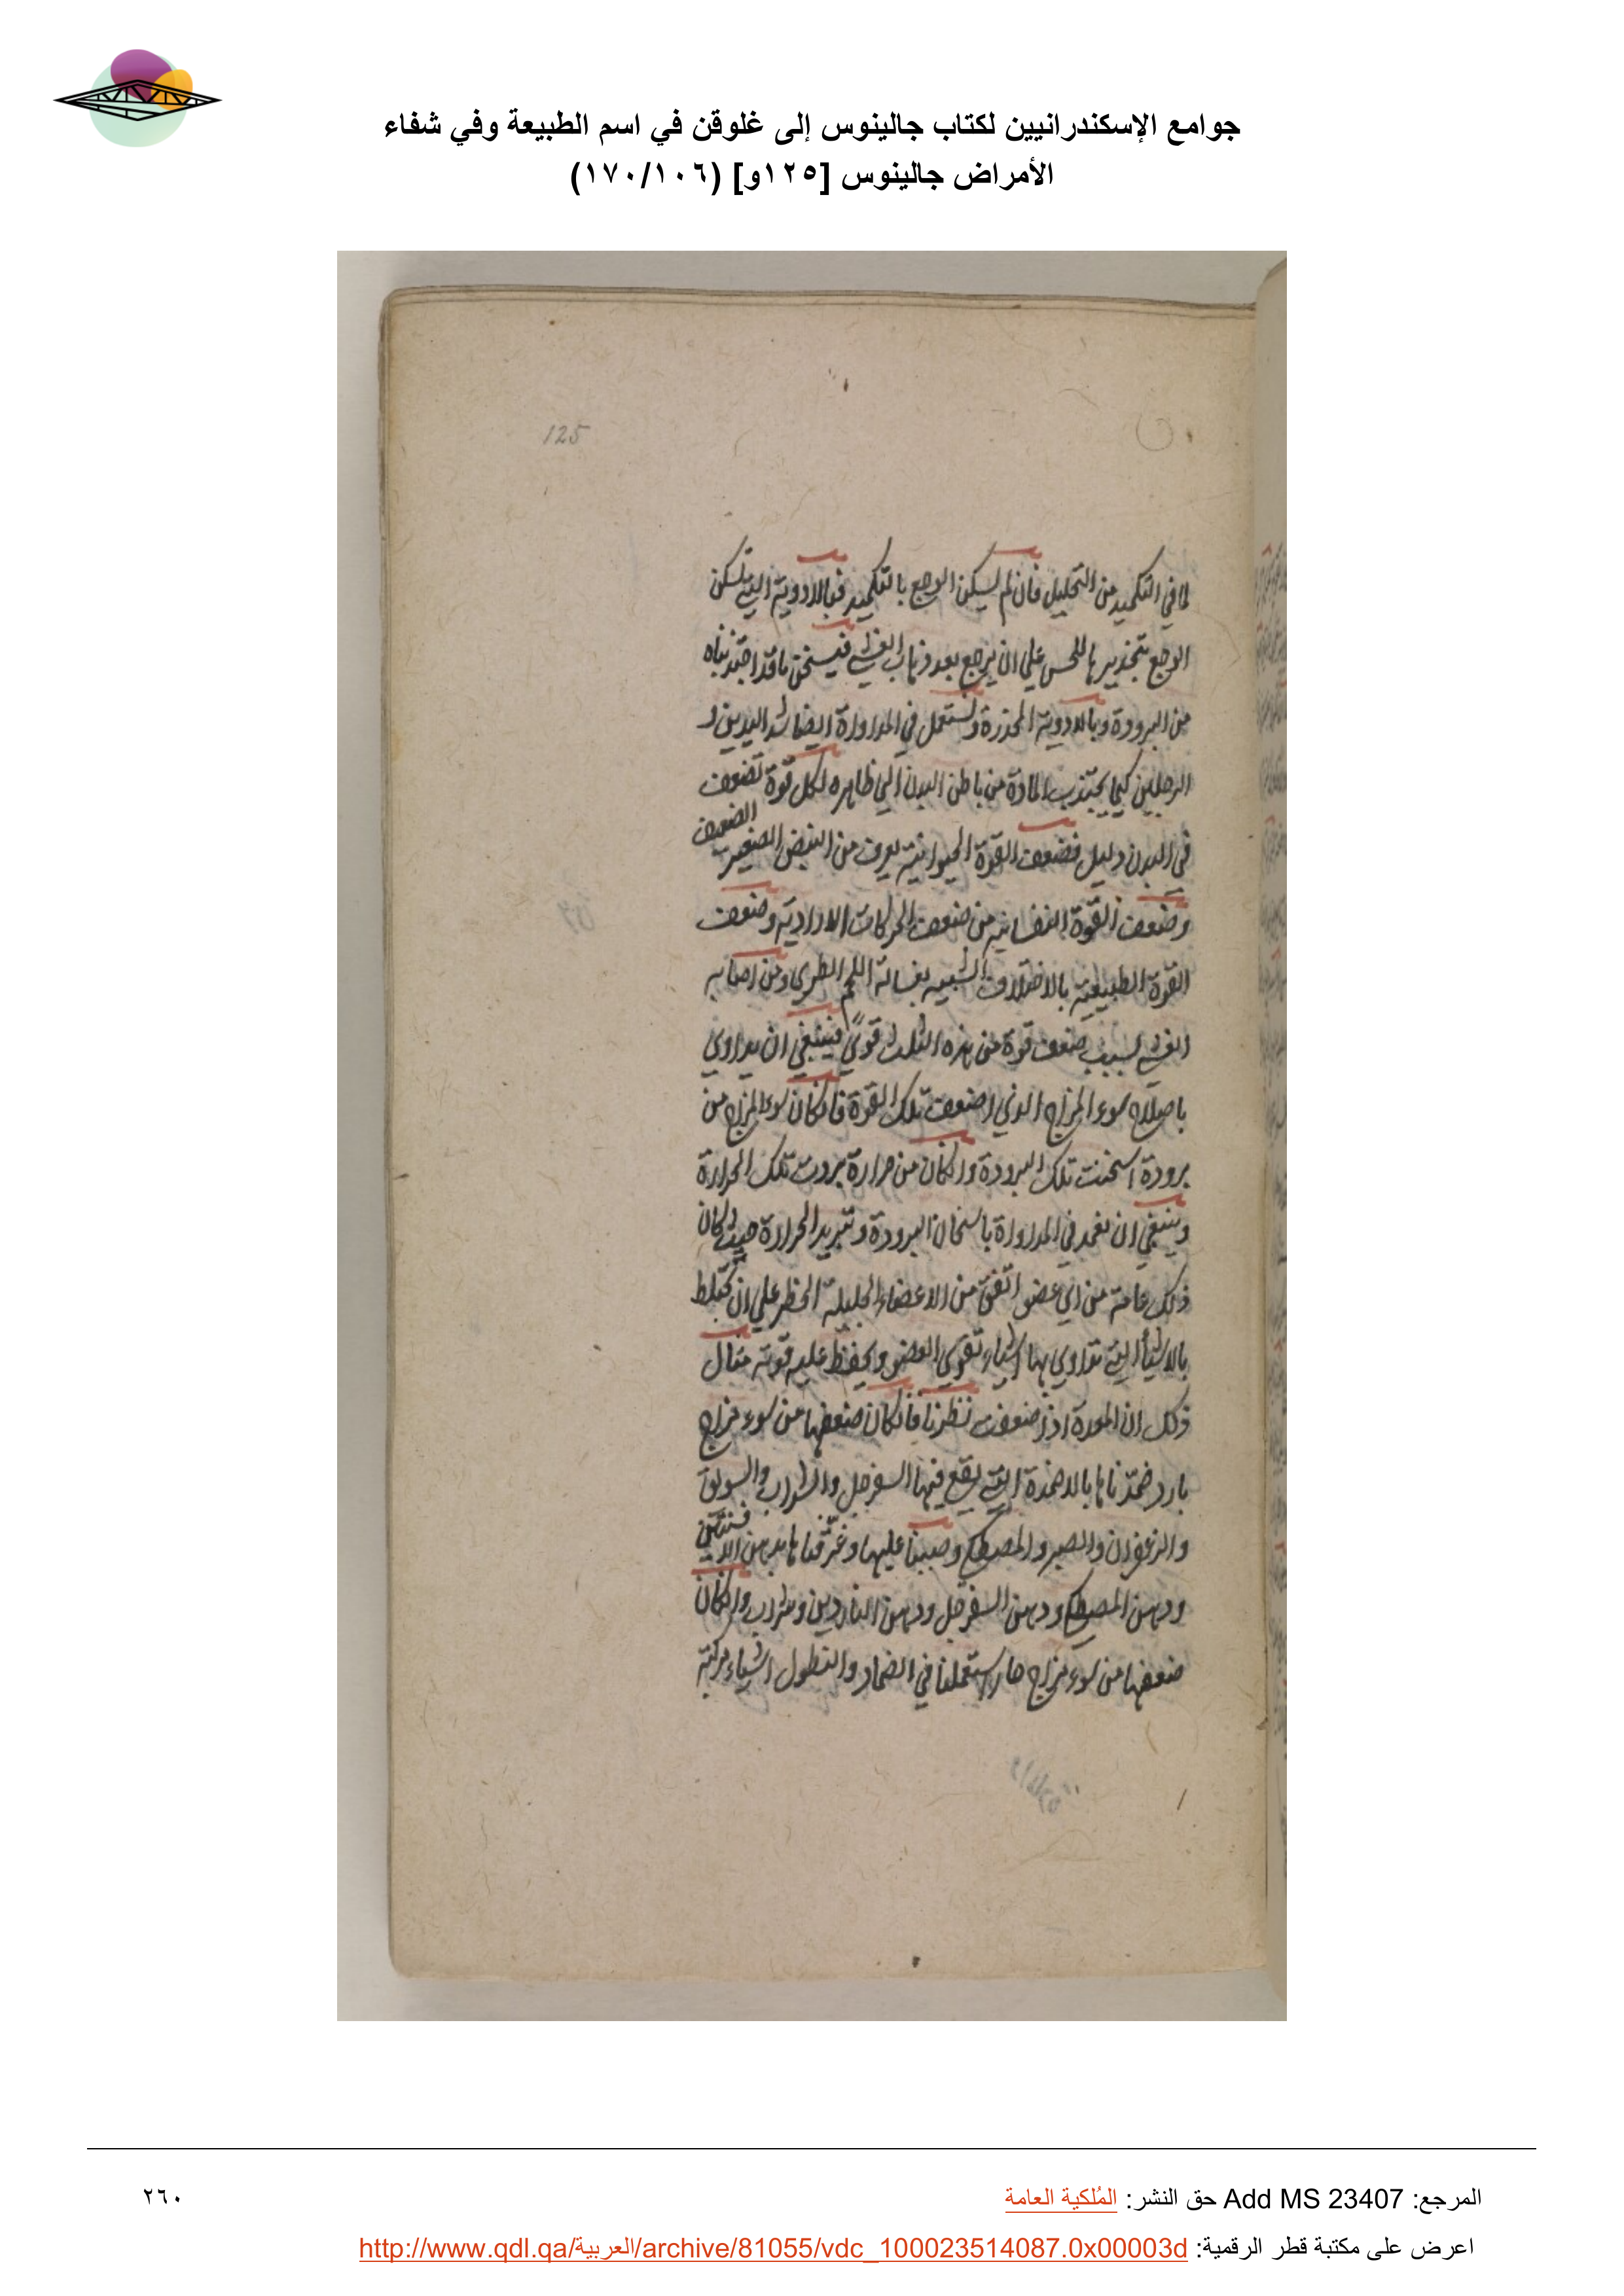 جوامع الإسكندرانيين لكتاب جالينوس إلى غلوقن في اسم الطبيعة وفي شفاء
الأمراض جالينوس [١٢٥و] (١٧٠/١٠٦)
125
لما في التكميد من التحليل فان لم يسكن الوجع بالتكميد فبالادوية التي تسكن
الوجع بتخديرها للحس على ان يرجع بعد ذهاب الغشي فيسخن ما قد اجتذبناه
من البرودة وبالادوية المخدرة ونستعمل في المداواة ايضا شد اليدين و
الرجلين كيما يجتذب المادة من باطن البدن الى ظاهره لكل قوة تضعف
في البدن دليل فضعف القوة الحيوانية يعرف من النبض الصغير الضعيف
وضعف القوة النفسانيه من ضعف الحركات الاراديه وضعف
القوة الطبيعية بالاختلاف الشبيه بغسالة اللحم الطري ومن اصابه
الغشي لسبب ضعف قوة من هذه الثلث قوى فينبغي ان يداوي
باصلاح سوء المزاج الذي اضعف تلك القوة فان كان سوء المزاج من
برودة اسخنت تلك البرودة وان كان من حرارة بردت تلك الحرارة
وينبغي ان نعمد في المداواة باسخان البرودة وتبريد الحرارة حيث كان
ذلك عامة من اي عضو اتفق من الاعضاء الجليلة الخطر على ان تخلط
بالاشياء التي تداوي بها اشياء تقوي العضو ويحفظ عليه قوته مثال
ذلك ان المعدة اذا ضعفت نظرنا فان كان ضعفها من سوء مزاج
بارد ضمدناها بالاضمدة التي يقع فيها السفرجل والشراب والسويق
والزعفران والصبر والمصطكي وصببنا عليها وغرقناها بدهن الافسنتين
ودهن المصطكي ودهن السفرجل ودهن الناردين وشراب وان كان
ضعفها من سوء مزاج حار استعملنا في الضماد والنطول اشياء مركبة
المرجع: Add MS 23407 حق النشر: المُلكية العامة
٢٦٠
اعرض على مكتبة قطر الرقمية: http://www.qdl.qa/العربية/archive/81055/vdc_100023514087.0x00003d